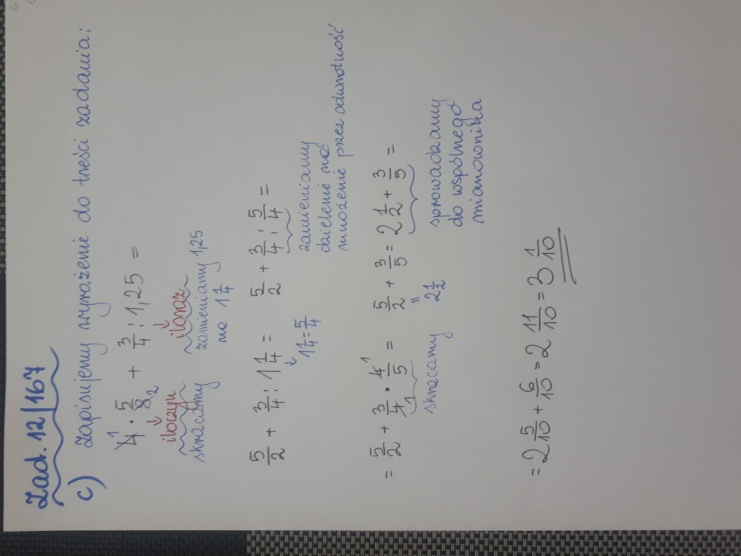 Zad. 12/167
c) Zapisujemy wyrażenie do treści zadania:
4̸¹ · 5/8̸₂ + 3/4 : 1,25 =
iloczyn iloraz
skracamy zamieniamy 1,25
na 1 1/4
5/2 + 3/4 : 1 1/4 = 5/2 + 3/4 : 5/4 =
1 1/4 = 5/4
zamieniamy
dzielenie na
mnożenie przez odwrotność
= 5/2 + 3/4̸₁ · 4̸¹/5 = 5/2 + 3/5 = 2 1/2 + 3/5 =
skracamy
" 2 1/2
sprowadzamy
do wspólnego
mianownika
= 2 5/10 + 6/10 = 2 11/10 = 3 1/10